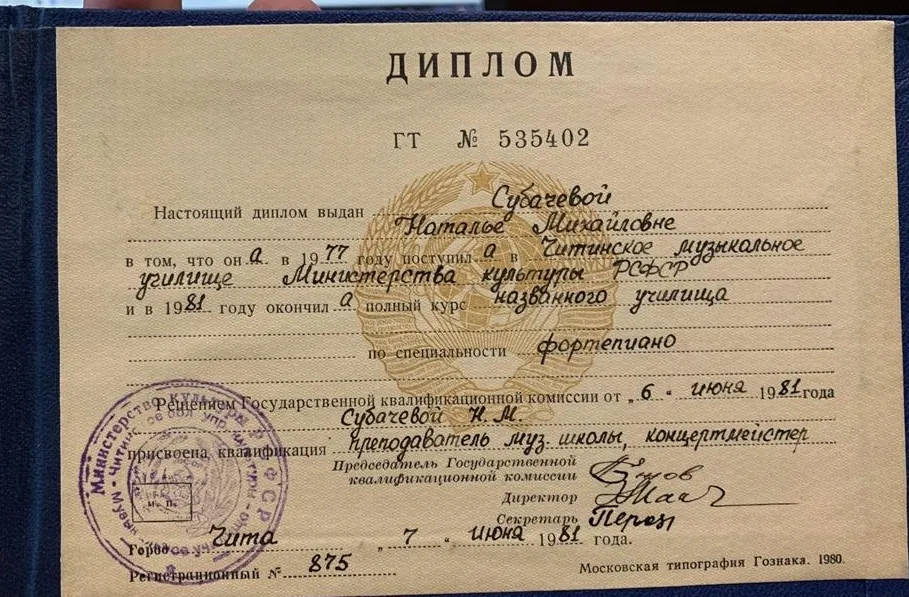 ДИПЛОМ
ГТ № 535402
Настоящий диплом выдан Субачевой
Наталье Михайловне
в том, что он а в 1977 году поступил а в Читинское музыкальное
училище Министерства культуры РСФСР
и в 1981 году окончил а полный курс названного училища
по специальности фортепиано
Решением Государственной квалификационной комиссии от „6“ июня 1981 года
Субачевой Н. М
присвоена квалификация преподаватель муз. школы, концертмейстер
Председатель Государственной
квалификационной комиссии
Директор
Секретарь
Город Чита „7“ июня 1981 года.
Регистрационный № 875
Московская типография Гознака. 1980.
Министерство культуры РСФСР
м. п.